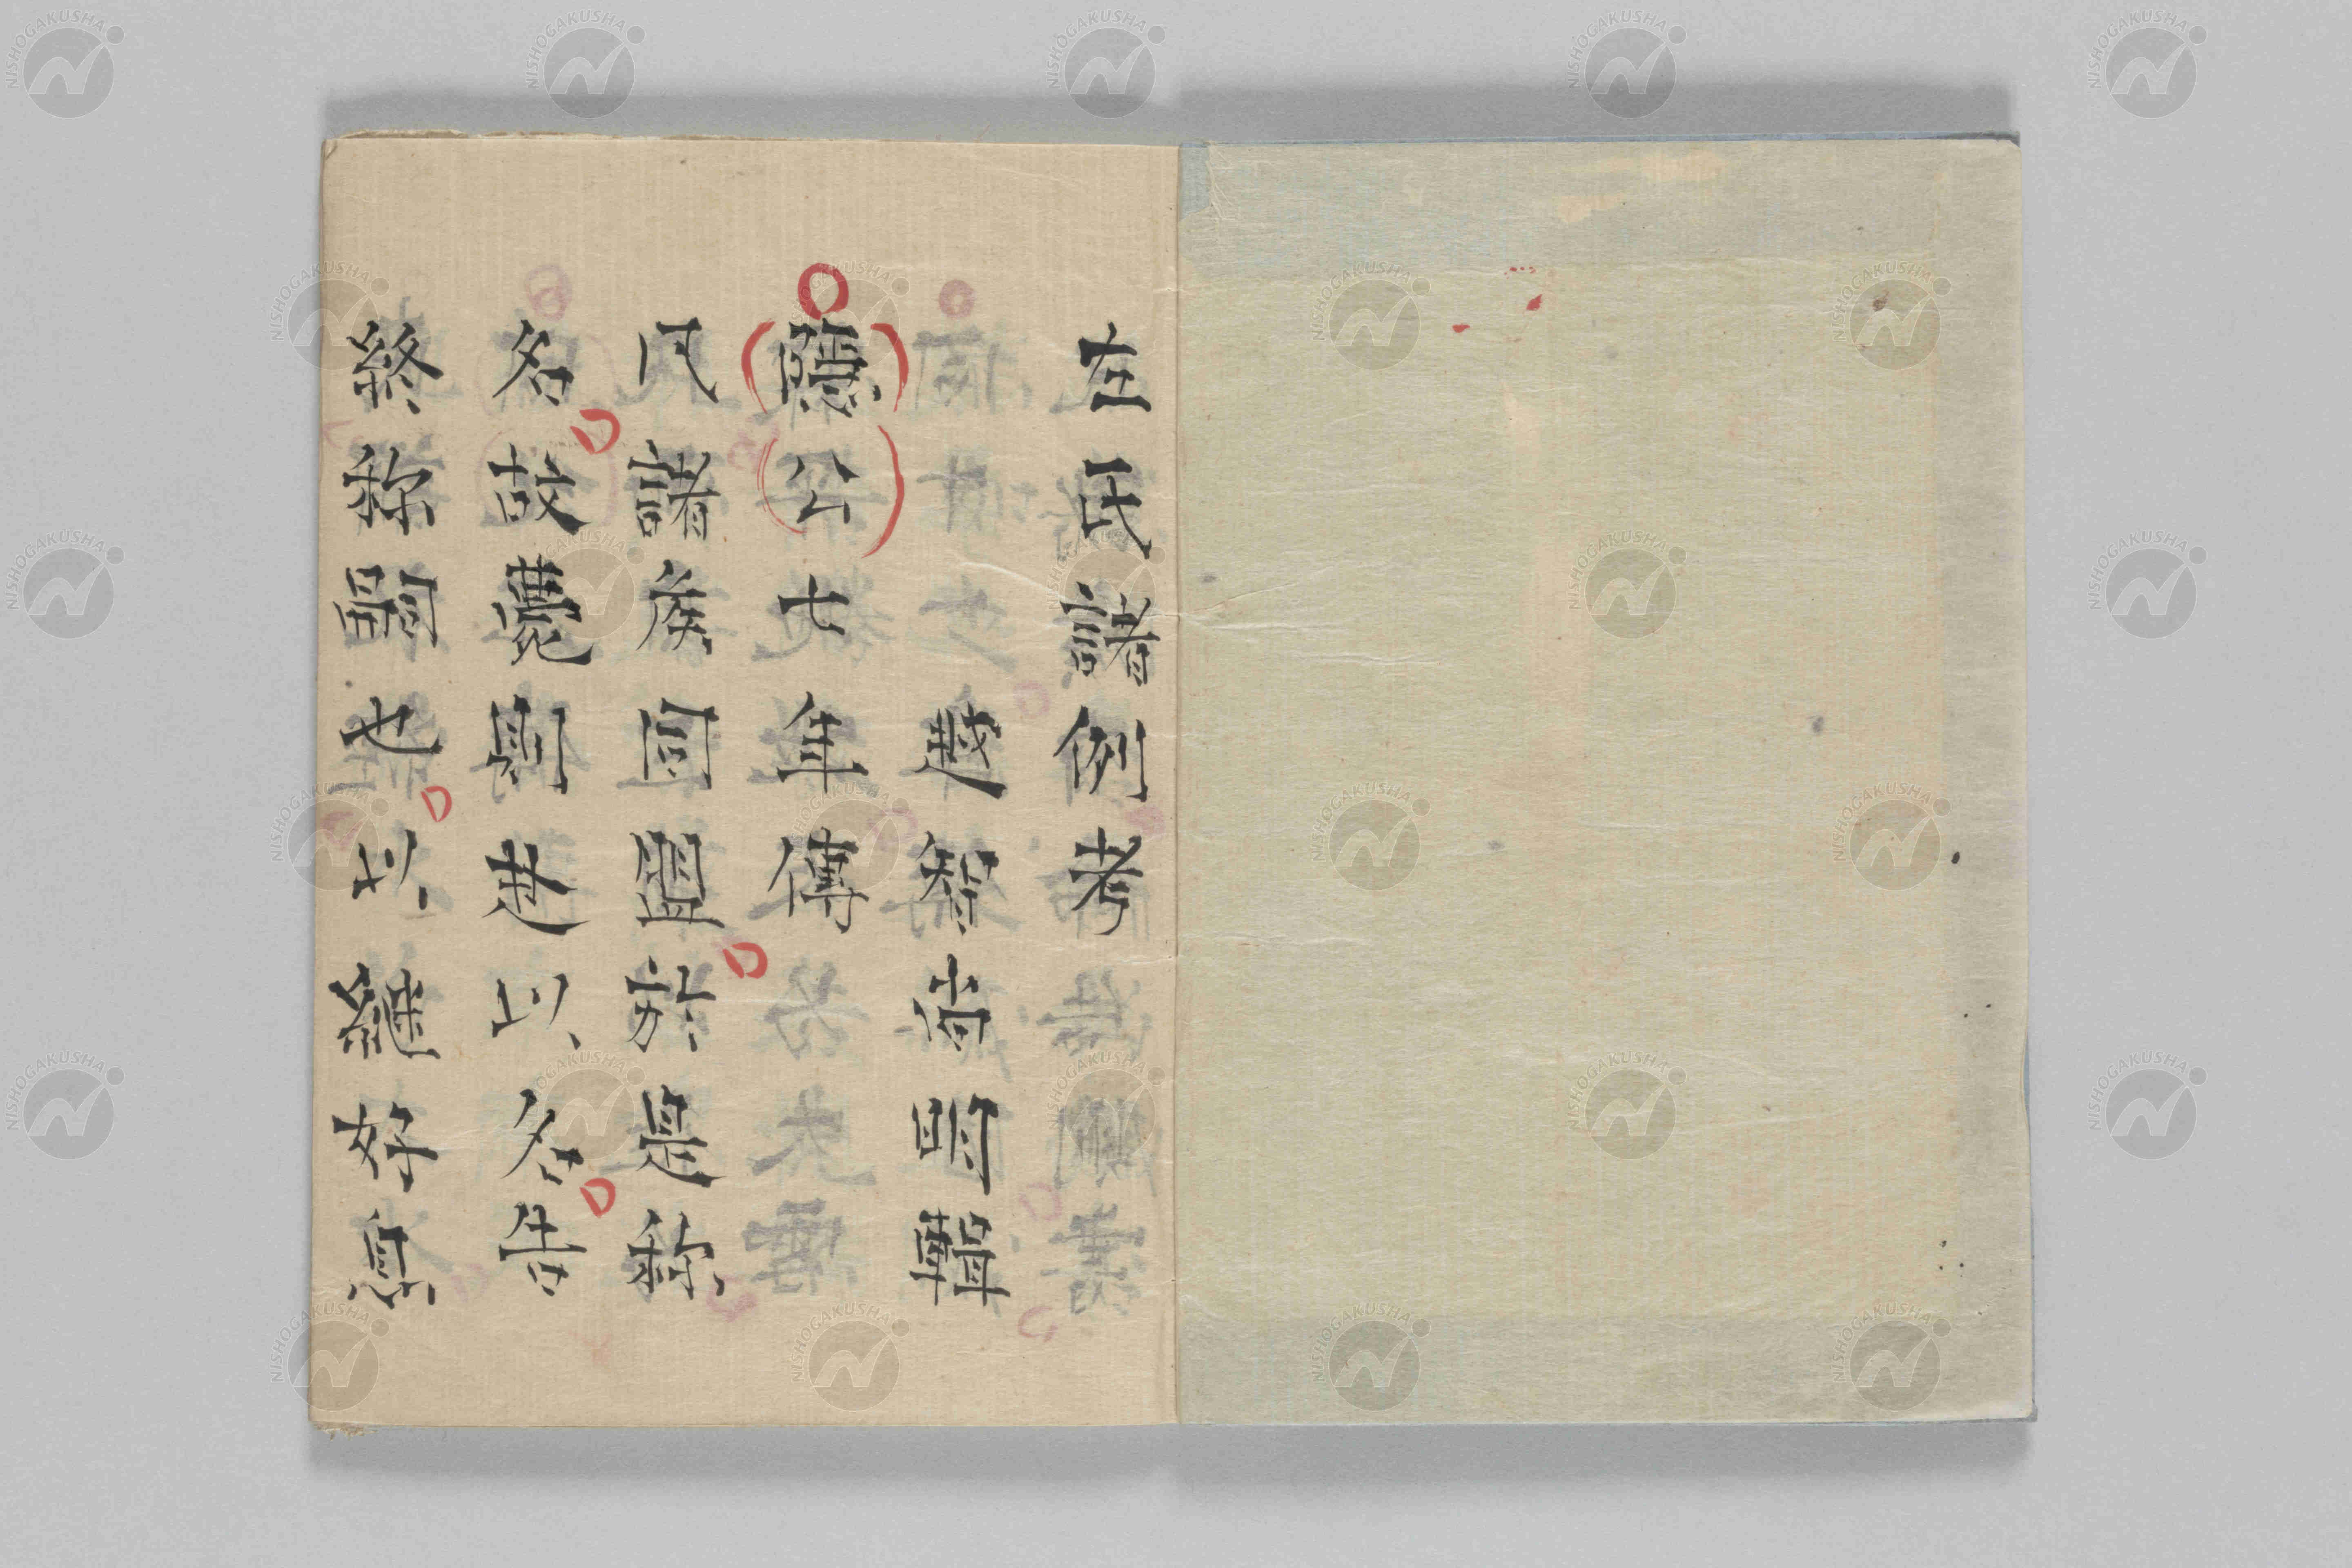 左氏諸例考
越智尚明輯
隱公七年傳
凡諸侯同盟於是稱
名故薨則赴以名告
終稱嗣也以繼好息
NISHOGAKUSHA